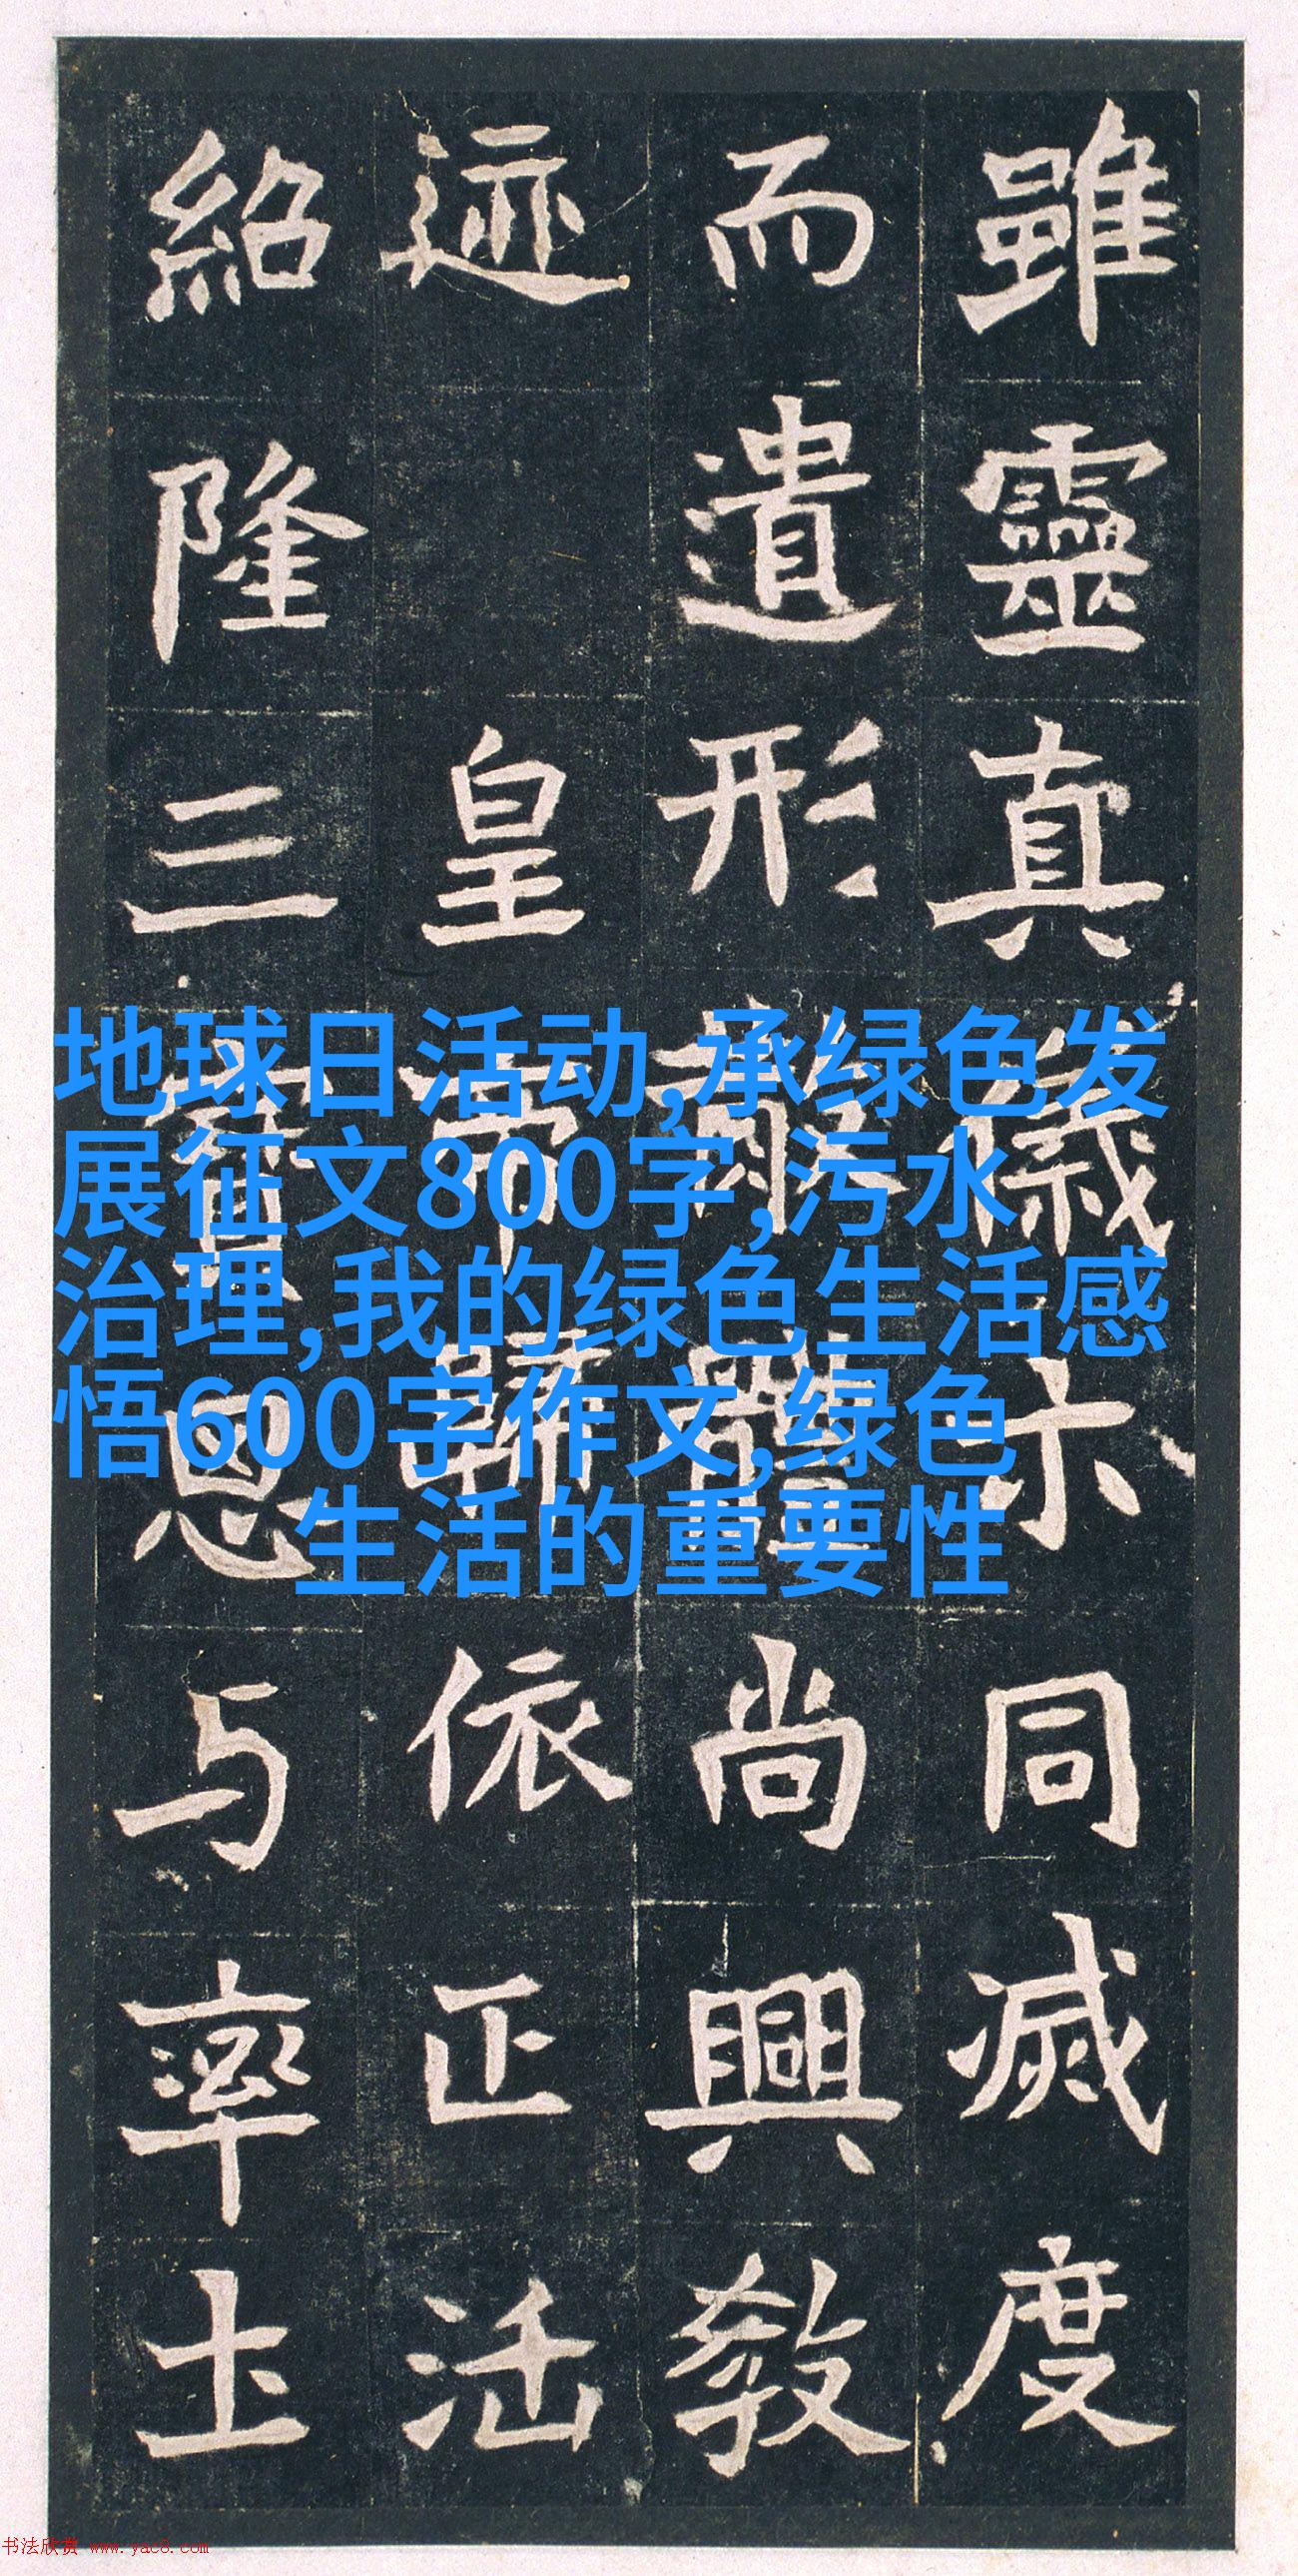 雖靈真儀示同滅度
而遺形散體尚興教
迹 皇帝歸依正法
紹隆三寶思与率土
地球日活动,承绿色发
展征文800字,污水
治理,我的绿色生活感
悟600字作文,绿色
生活的重要性
书法欣赏 www.yac8.com